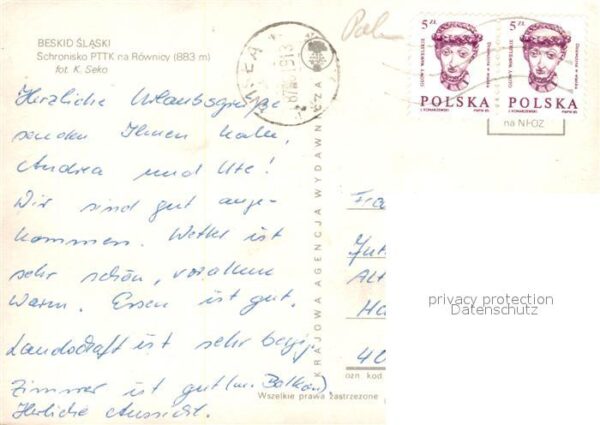 BESKID ŚLĄSKI
Schronisko PTTK na Równicy (883 m)
fot. K. Seko
Herzliche Urlaubsgrüße
senden Ihnen
Andrea und Ute!
Wir sind gut ange-
kommen. Wetter ist
sehr schön, vor allem
warm. Essen ist gut.
Landschaft ist sehr bergig
Zimmer ist gut (m. Balkon).
Herrliche Aussicht.
KRAJOWA AGENCJA WYDAWNICZA
5 ZŁ
GŁOWY WAWELSKIE
POLSKA
5 ZŁ
GŁOWY WAWELSKIE
POLSKA
na NFOZ
Alt
40
ozn kod
Wszelkie prawa zastrzeżone
privacy protection
Datenschutz